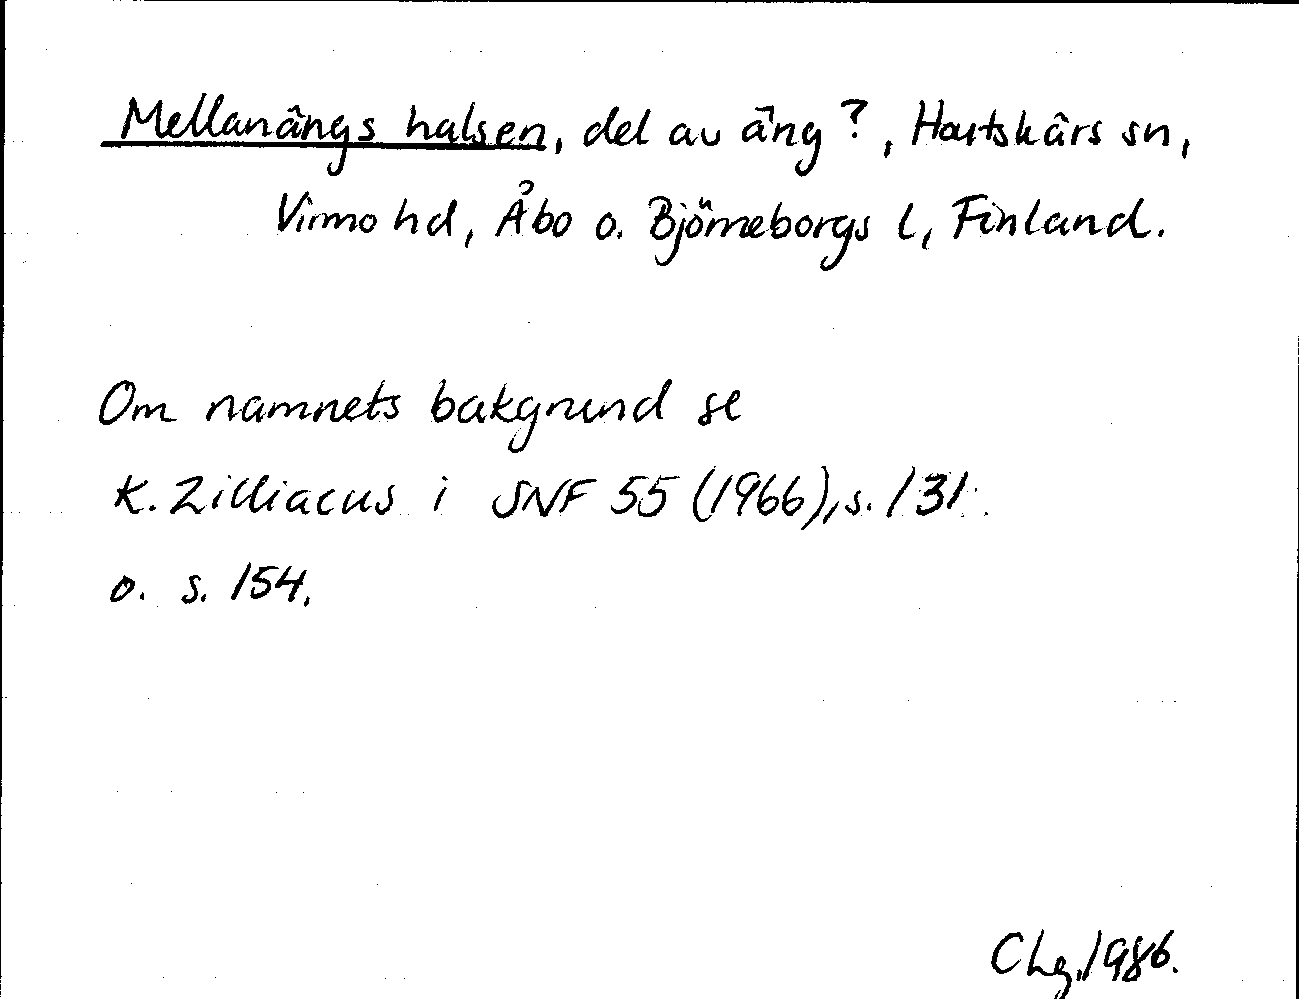 Mellanängs halsen, del av äng?, Houtskärs sn,
Virmo hd, Åbo o. Björneborgs l, Finland.
Om namnets bakgrund se
K. Zilliacus i SNF 55 (1966), s. 131
o. s. 154.
Chg. 1986.